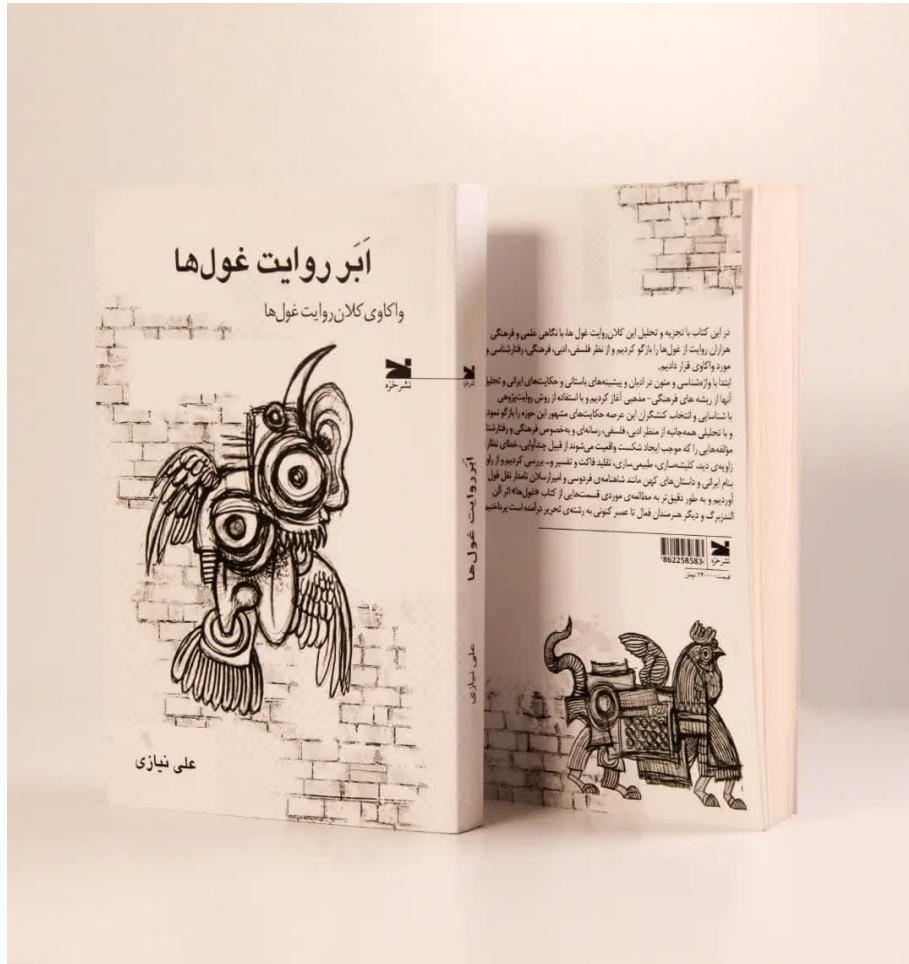 اَبَر روایت غول‌ها
واکاوی کلان‌روایت غول‌ها
نشر خزه
علی نیازی
نشر خزه
اَبَر روایت غول‌ها
علی نیازی
در این کتاب با تجزیه و تحلیل این کلان‌روایت غول ها، با نگاهی علمی و فرهنگی
هزاران روایت از غول‌ها را بازگو کردیم و از نظر فلسفی، ادبی، فرهنگی، رفتارشناسی و
مورد واکاوی قرار دادیم.
ابتدا با واژه‌شناسی و متون در ادیان و پیشینه‌های باستانی و حکایت‌های ایرانی و تحلیل
آنها از ریشه های فرهنگی- مذهبی آغاز کردیم و با استفاده از روش روایت‌پژوهی
با شناسایی و انتخاب کنشگران این عرصه حکایت‌های مشهور این حوزه را بازگو
و با تحلیلی همه‌جانبه از منظر ادبی، فلسفی، رسانه‌ای و به‌خصوص فرهنگی و
مؤلفه‌هایی را که موجب ایجاد شکست واقعیت می‌شوند از قبیل چندآوایی، خطای
زاویه‌ی دید، کلیشه‌سازی، طبیعی‌سازی، تقلید فاکت و تفسیر و... بررسی کردیم و از
بنام ایرانی و داستان‌های کهن مانند شاهنامه‌ی فردوسی و امیرارسلان نامدار نقل قول
آوردیم و به طور دقیق‌تر به مطالعه‌ی موردی قسمت‌هایی از کتاب «غول‌ها» اثر آلن
و دیگر هنرمندان فعال تا عصر کنونی به رشته‌ی تحریر درآمده است پرداختیم
نشر خزه
786225858
قیمت: ۷۴۰۰۰ تومان